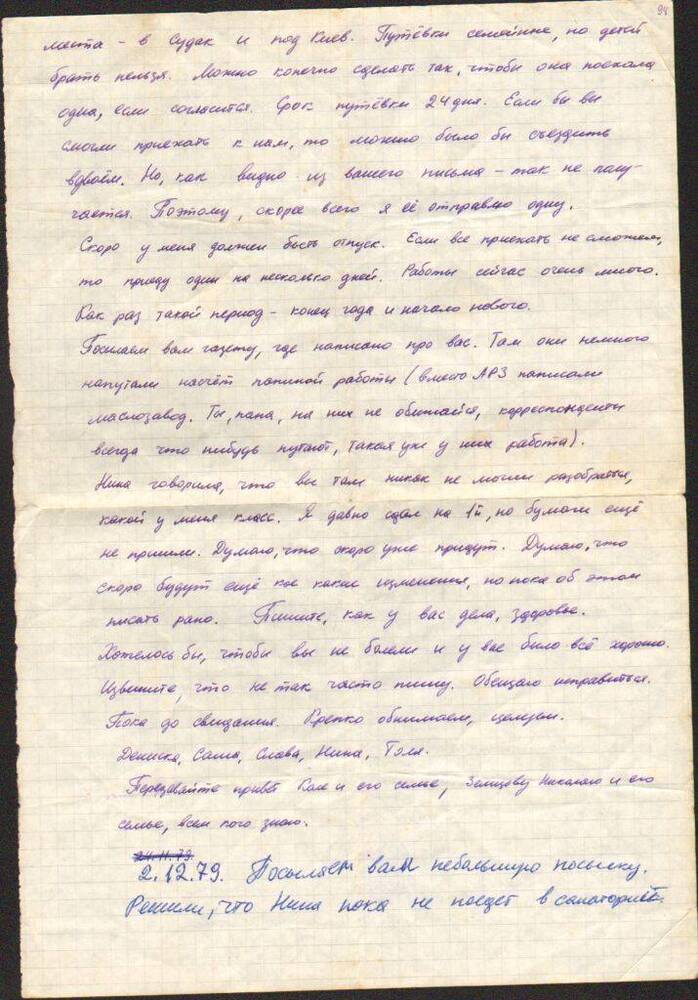 94
места - в Судак и под Киев. Путёвки семейные, но детей
брать нельзя. Можно конечно сделать так, чтобы она поехала
одна, если согласится. Срок путёвки 24 дня. Если бы вы
смогли приехать к нам, то можно было бы съездить
вдвоём. Но, как видно из вашего письма - так не полу-
чается. Поэтому, скорее всего я её отправлю одну.
Скоро у меня должен быть отпуск. Если все приехать не сможем,
то приеду один на несколько дней. Работы сейчас очень много.
Как раз такой период - конец года и начало нового.
Посылаем вам газету, где написано про вас. Там они немного
напутали насчёт папиной работы (вместо АРЗ написали
маслозавод. Ты, папа, на них не обижайся, корреспонденты
всегда что нибудь путают, такая уж у них работа).
Нина говорила, что вы там никак не могли разобраться,
какой у меня класс. Я давно сдал на 1й, но бумаги ещё
не пришли. Думаю, что скоро уже придут. Думаю, что
скоро будут ещё кое какие изменения, но пока об этом
писать рано. Пишите, как у вас дела, здоровье.
Хотелось бы, чтобы вы не болели и у вас было всё хорошо.
Извините, что не так часто пишу. Обещаю исправиться.
Пока до свидания. Крепко обнимаем, целуем.
Дениска, Саша, Слава, Нина, Толя.
Передавайте привет Коле и его семье, Николаю и его
семье, всем кого знаю.
24.11.79.
2.12.79. Посылаем вам небольшую посылку.
Решили, что Нина пока не поедет в санаторий.